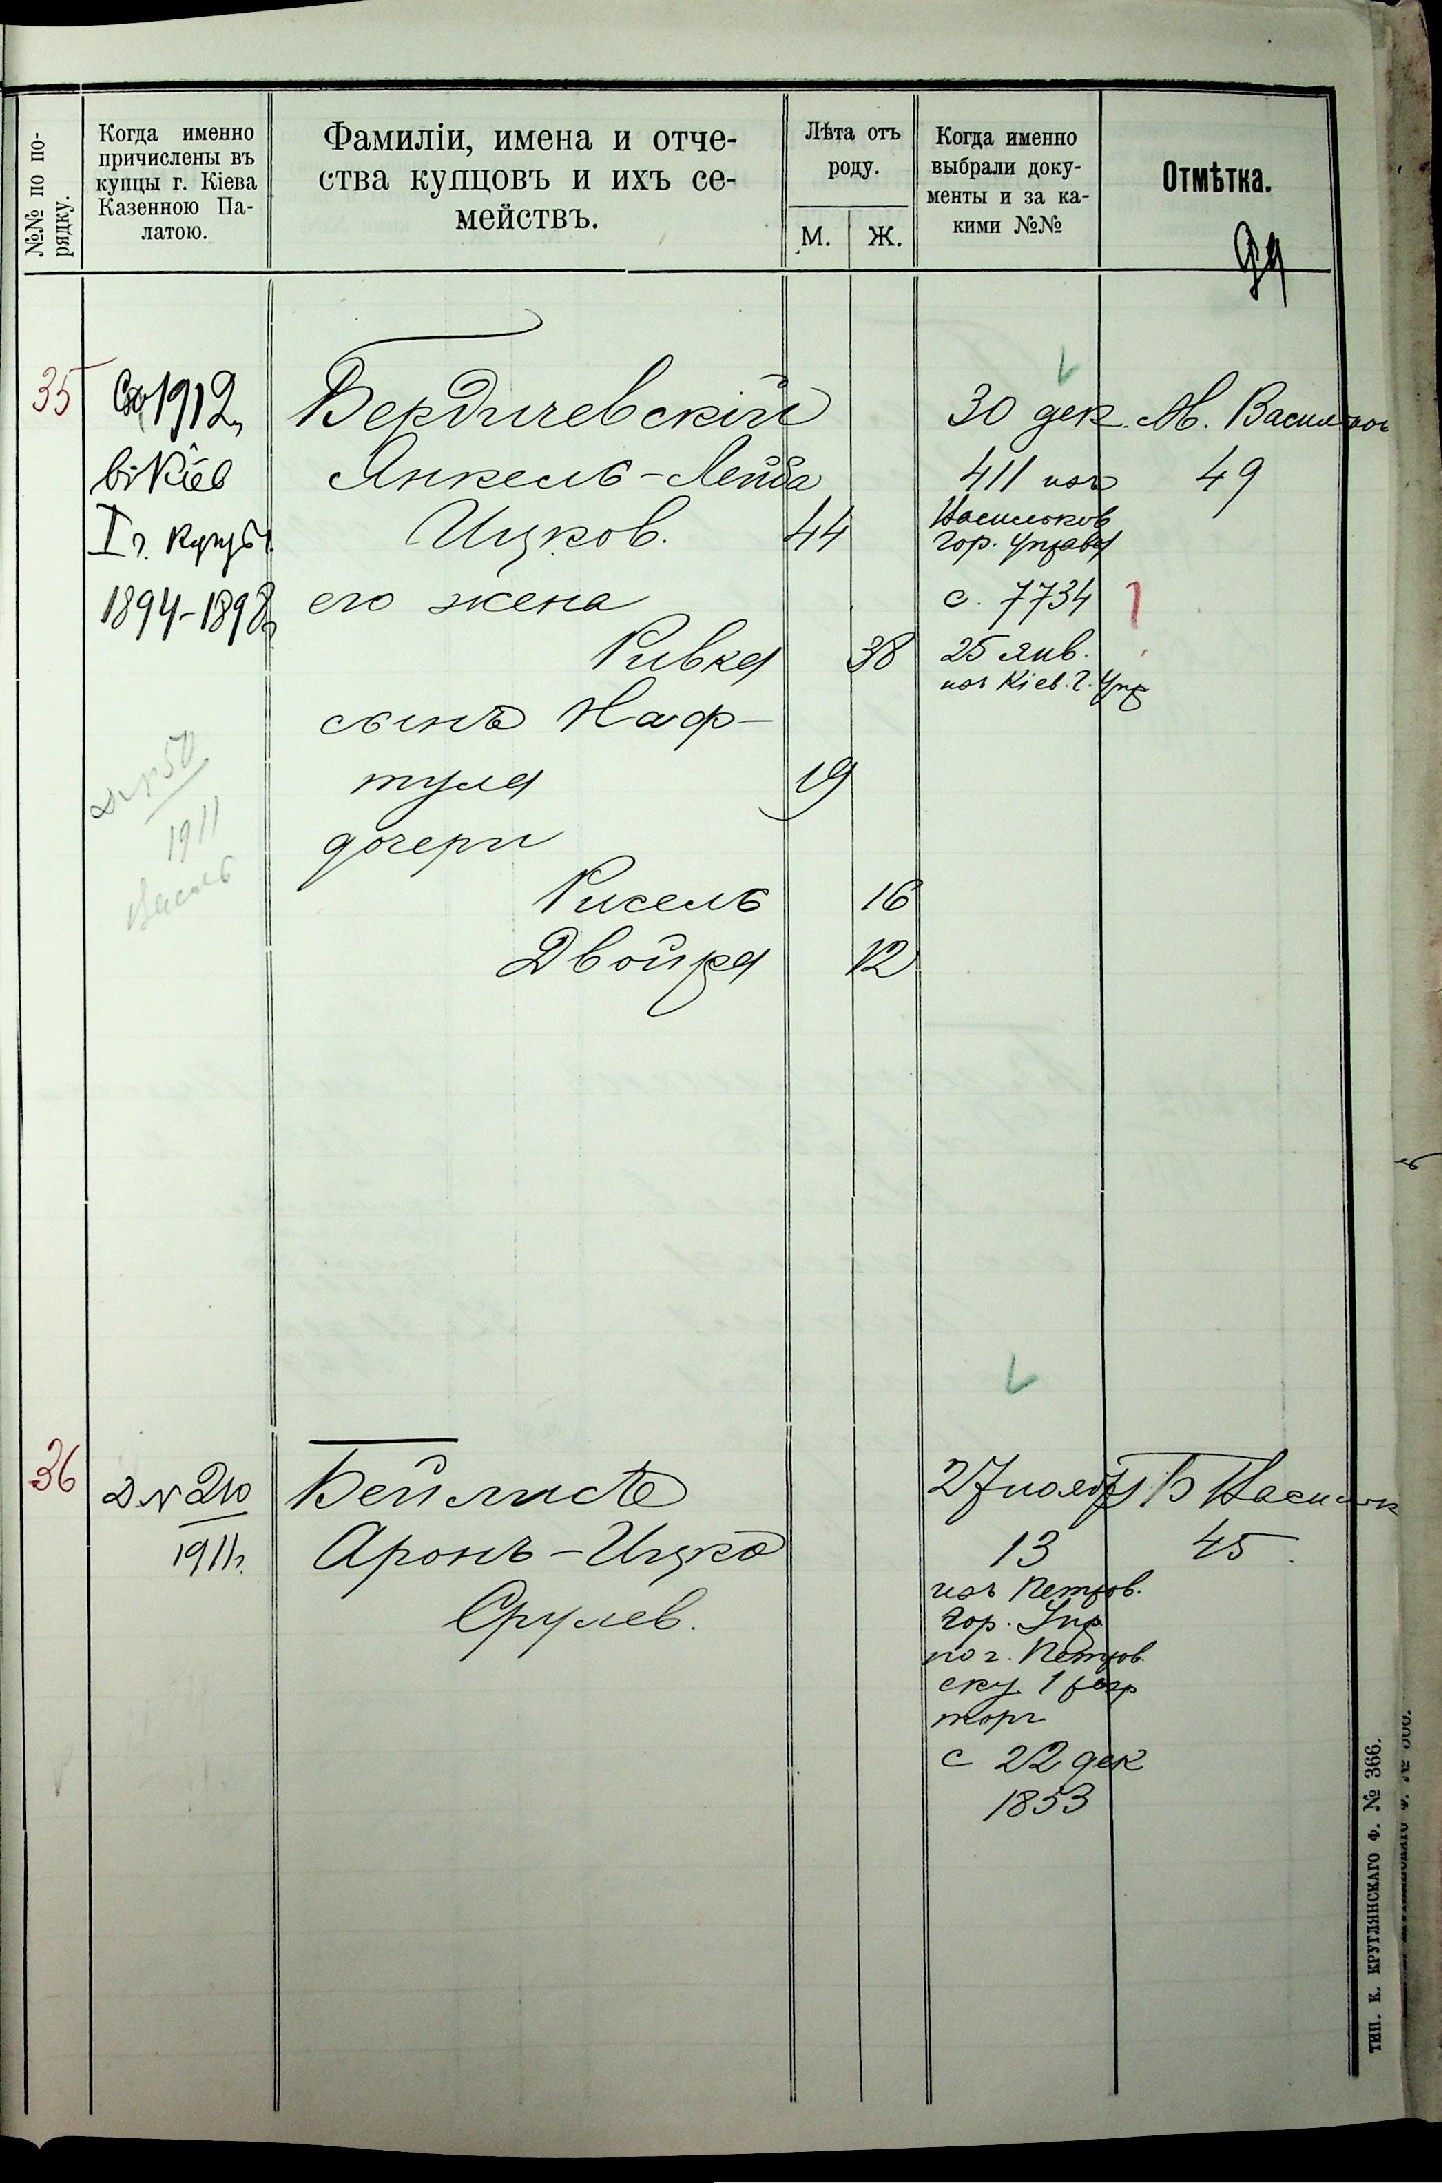 №№ по по-
рядку.
Когда именно
причислены въ
купцы г. Кіева
Казенною Па-
латою.
Фамиліи, имена и отче-
ства купцовъ и ихъ се-
мействъ.
Лѣта отъ
роду.
М.
Ж.
Когда именно
выбрали доку-
менты и за ка-
кими №№
Отмѣтка.
35
Со 1912
въ Кіев
I г. купцы
1894-1898
Бердичевскій
Янкель-Лейба
Ицков.
44
его жена
Ривка
38
сынъ Наф-
тула
19
дочери
Рисель
16
Двойра
12
30 дек.
411 изъ
Васильков
Гор. Управы
с. 7734
25 янв.
изъ Кіев. Г. Упр
М. Васильков
49
№ 50
1911
Васильк
36
Д № 210
1911 г.
Бейлисъ
Аронъ-Ицко
Срулев.
27 ноября
13
изъ Петров.
Гор. Упр
по г. Петров
ску 1 разр
торг
с 22 дек
1853
Б Васильк
45
ТИП. К. КРУГЛЯНСКАГО Ф. № 366.